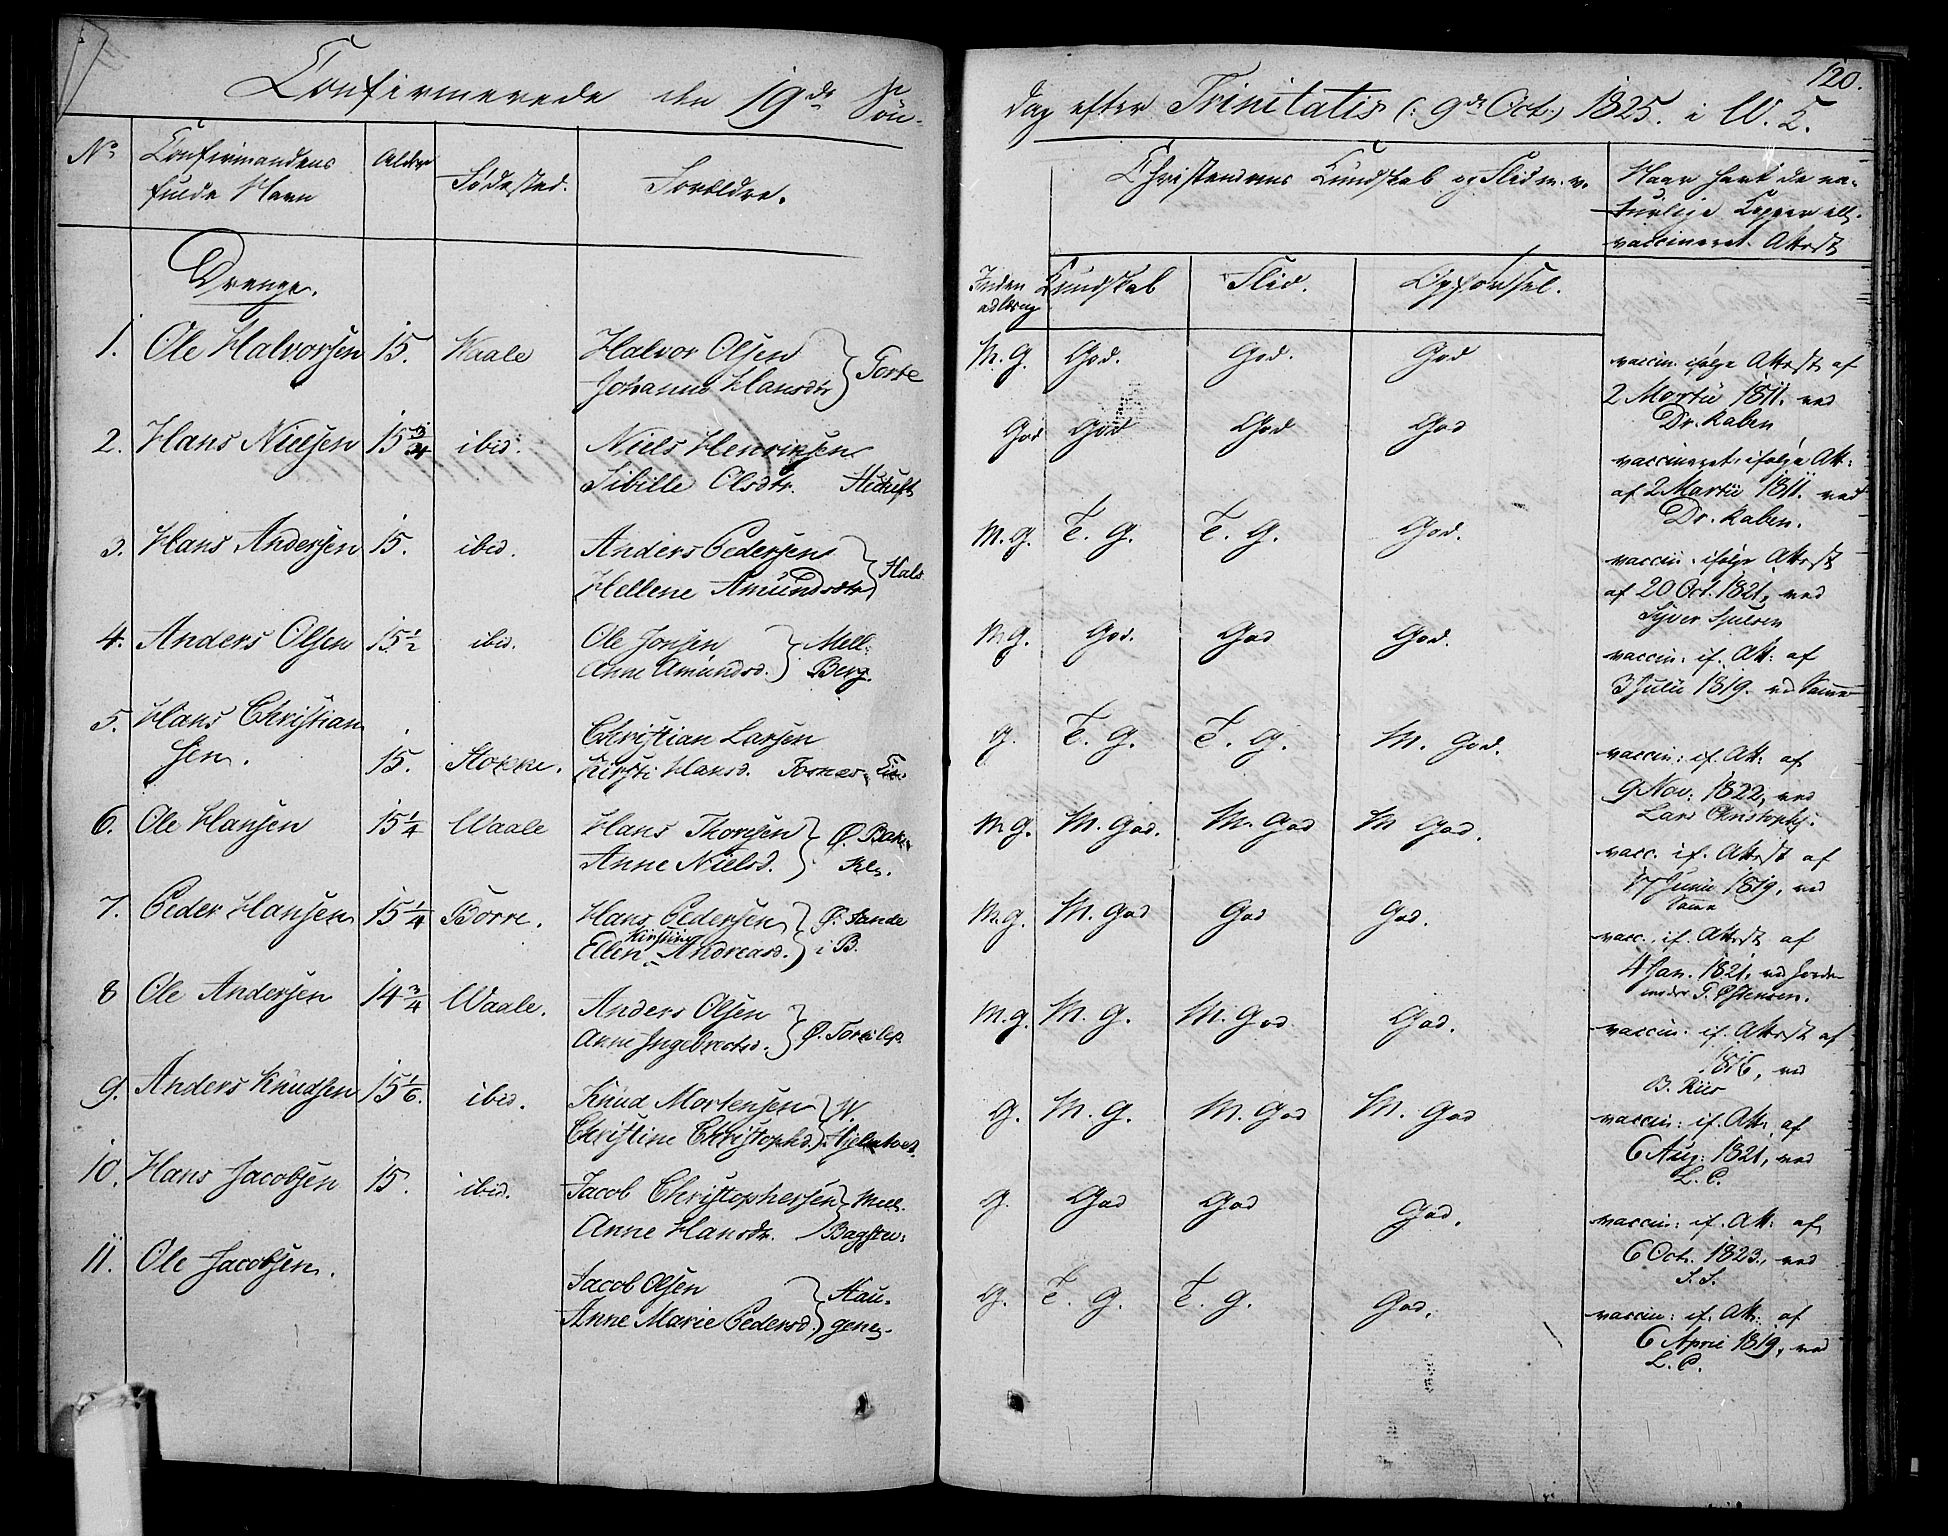 Confirmerede den 19de Søn-
No
Confirmandens
fulde Navn
Alder
Födested.
Forældre.
Drenge.
1. Ole Halvorsen 15. Waale Halvor Olsen
Johanne Hansdtr Torre
2. Hans Nielsen 15 3/4 ibid. Niels Henriksen
Sibille Olsdtr.
3. Hans Andersen 15. ibid. Anders Pedersen
Hellene Amundsdtr Hals
4. Anders Olsen 15 1/2 ibid. Ole Jonsen Mell:
Anne Amundsd. Berg
5. Hans Christian
sen. 15. Stokke. Christian Larsen
Kirsti Hansd.
6. Ole Hansen 15 1/4 Waale Hans Thoresen Ø. Bak-
Anne Nielsd.
7. Peder Hansen 15 1/4 Borre. Hans Pedersen Ø. Sande
Kirstine
Ellen Andreasd. i B.
8 Ole Andersen 14 3/4 Waale. Anders Olsen
Anne Ingebrectsd. Ø.
9. Anders Knudsen 15 1/6. ibid. Knud Mortensen W.
Christine Christophd.
10. Hans Jacobsen 15. ibid. Jacob Christophersen Mell.
Anne Hansdtr. Bagsten:
11. Ole Jacobsen. Jacob Olsen Hau-
Anne Marie Pedersd. gene.
120.
dag efter Trinitatis (: 9de Oct:) 1825. i W. K.
Christendoms Kundskab og Flid m. v.
Naar havt de na-
turlige Kopper ell.
vaccineret. Attest
Inden
adlæsng
Kundskab
Flid.
Opførsel.
M. G. God. God. God vaccin. ifølge Attest af
2 Martii 1811. ved
Dr. Raben
God God God God vaccineret. ifølge Att:
af 2 Martii 1811. ved
Dr. Raben.
M. G. T. G. T. G. God. vaccin. ifølge Attest
af 20 Oct. 1821, ved
Syver
M G. God. God God. vaccin: if. Att: af
3 Julii 1819. vd Samme
G. T. G. T. G. M. God. vaccin: if. Att: af
9 Nov: 1822, ved
Lars Christophs:
M G. M. God. M. God M God. vacc. if. Attest af
17 Junii 1819, ved
Samme
M. G. M. God God God. vacc. if. Attest af
4 Jan. 1821, ved Jorde-
moder
M. G. M. G. M. God God. vaccin: if. Attest af
1816, ved
B. Riis
G. M. G. M. God M. God vaccin: if. Att. af
6 Aug: 1821, ved
L. C.
G. God God God. vaccin: if. Att: af
6 Oct. 1823., ved
S. S.
G. T. G. T. G. God. vaccin: if. Att: af
6 April 1819, ved
L. C.